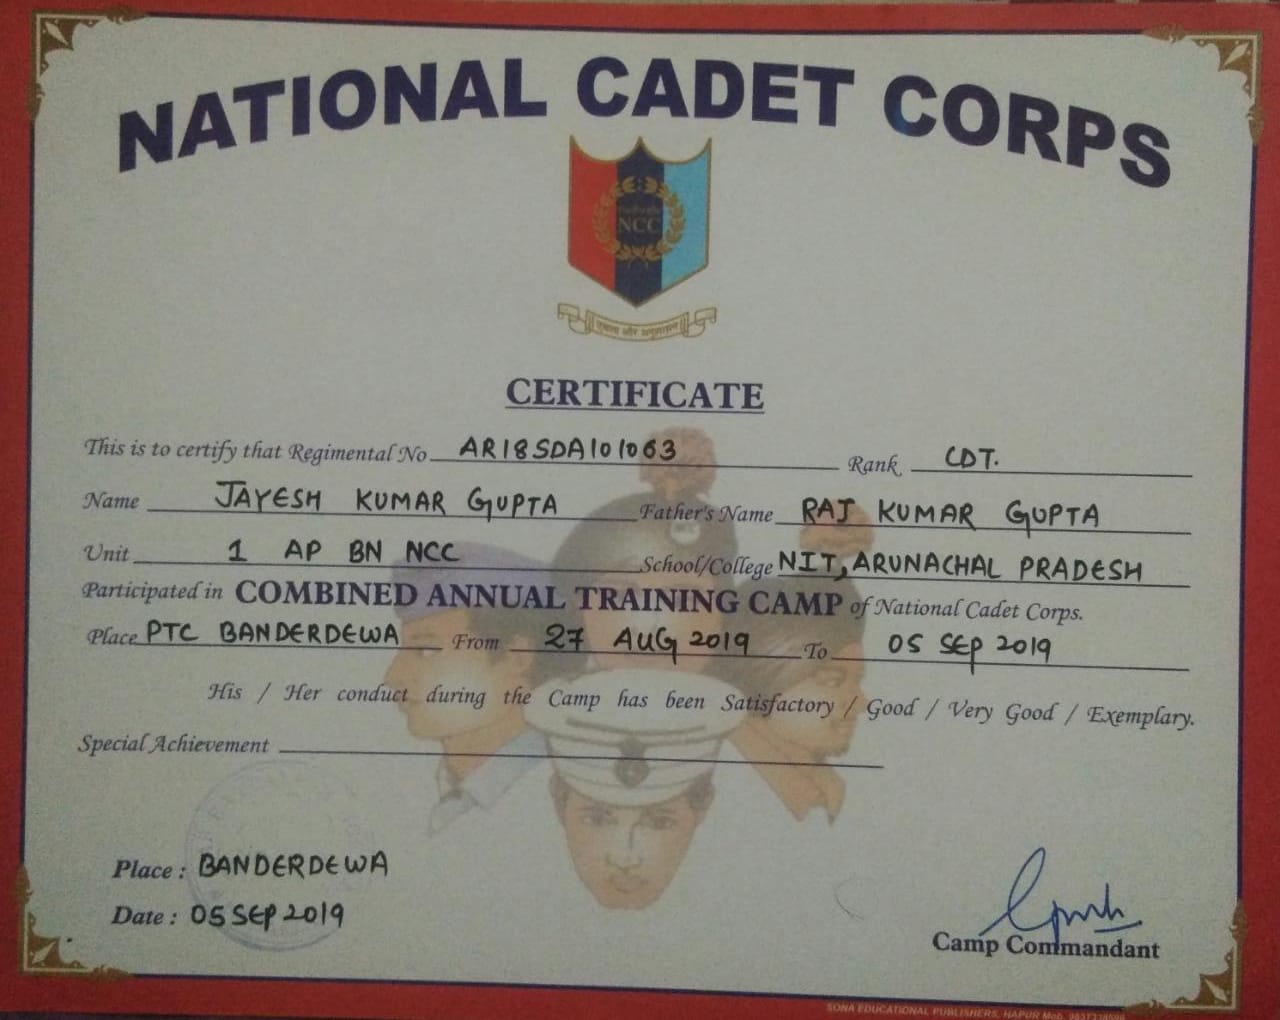 NATIONAL CADET CORPS
NCC
एकता और अनुशासन
CERTIFICATE
This is to certify that Regimental No AR18SDA101063 Rank CDT.
Name JAYESH KUMAR GUPTA Father's Name RAJ KUMAR GUPTA
Unit 1 AP BN NCC School/College NIT, ARUNACHAL PRADESH
Participated in COMBINED ANNUAL TRAINING CAMP of National Cadet Corps.
Place PTC BANDERDEWA From 27 AUG 2019 To 05 SEP 2019
His / Her conduct during the Camp has been Satisfactory / Good / Very Good / Exemplary.
Special Achievement
Place : BANDERDEWA
Date : 05 SEP 2019
Camp Commandant
SONA EDUCATIONAL PUBLISHERS, HAPUR Mob.